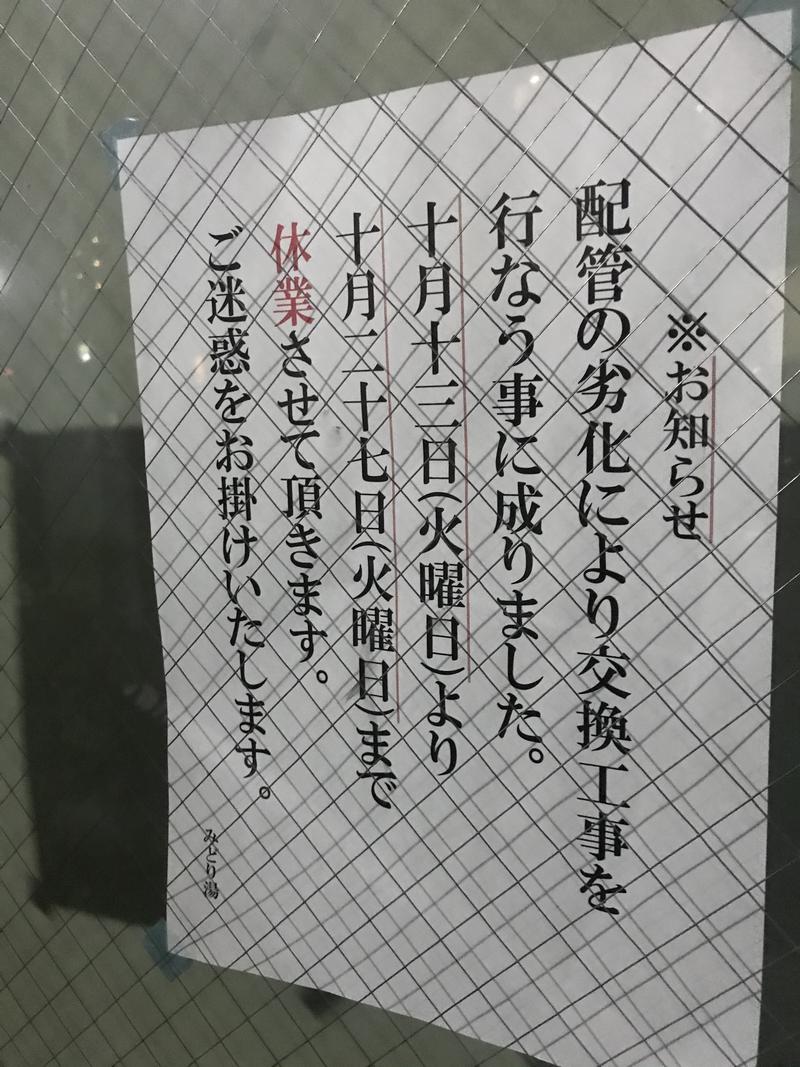 ※お知らせ
配管の劣化により交換工事を
行なう事に成りました。
十月十三日(火曜日)より
十月二十七日(火曜日)まで
休業させて頂きます。
ご迷惑をお掛けいたします。
みどり湯